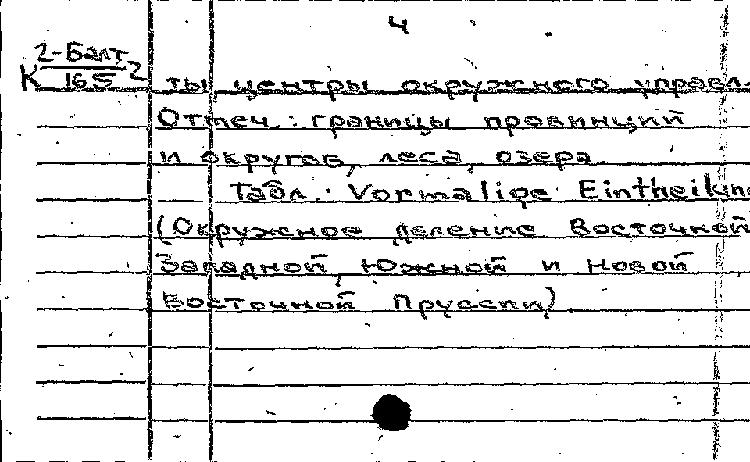 4
К 2-Балт/165 2
ты центры окружного управл.
Отмеч.: границы провинций
и округов, леса, озера.
Табл.: Vormalige Eintheilung
(Окружное деление Восточной
Западной, Южной и Новой
Восточной Пруссии)